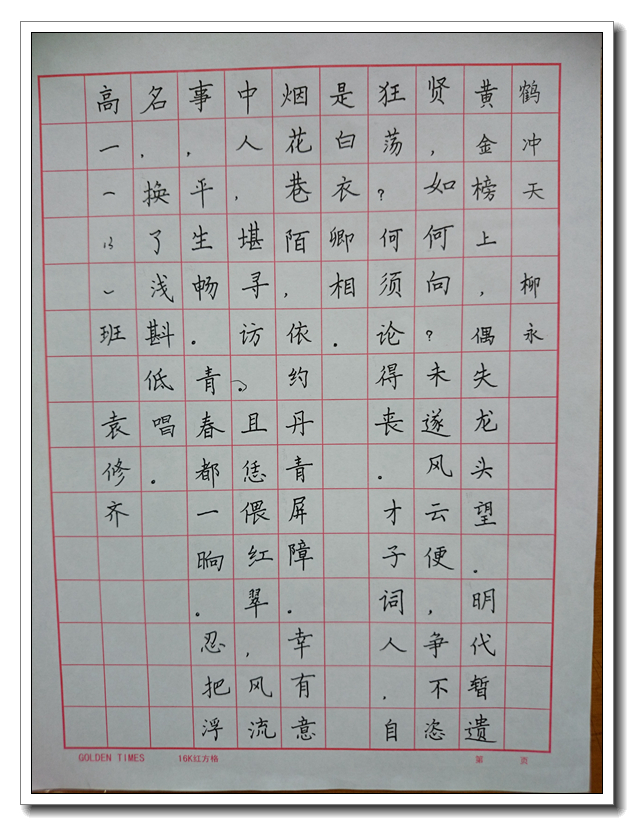 鹤冲天 柳永
黄金榜上，偶失龙头望。明代暂遗
贤，如何向？未遂风云便，争不恣
狂荡？何须论得丧。才子词人，自
是白衣卿相。
烟花巷陌，依约丹青屏障。幸有意
中人，堪寻访。且恁偎红翠，风流
事，平生畅。青春都一晌。忍把浮
名，换了浅斟低唱。
高一(13)班 袁修齐
GOLDEN TIMES 16K红方格 第 页